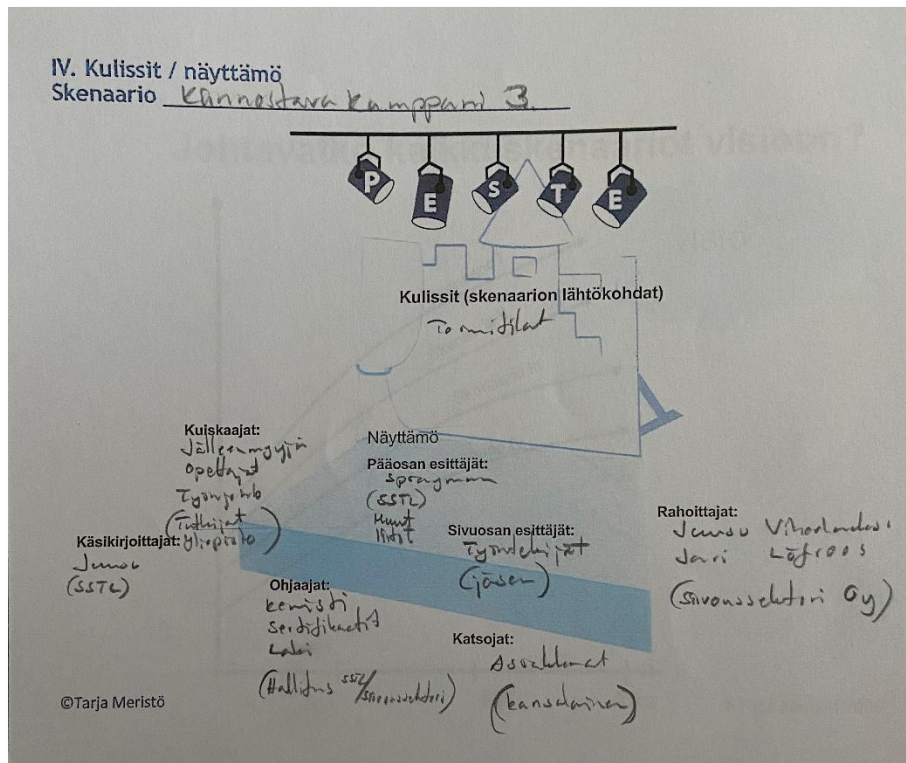 IV. Kulissit / näyttämö
Skenaario Kannostava kumppani 3.
P E S T E
Kulissit (skenaarion lähtökohdat)
Toimitilat
Kuiskaajat:
Jälleenmyyjä
Opettajat
Työnjohto
(Tutkijat
yliopisto)
Näyttämö
Pääosan esittäjät:
(SSTL)
Muut
liitot
Sivuosan esittäjät:
Työntekijät
(jäsen)
Rahoittajat:
Juuso
Jari Löfroos
(Siivoussektori Oy)
Käsikirjoittajat:
Juuso
(SSTL)
Ohjaajat:
kemisti
Sertifikaatit
Laki
(Hallitus SSTL/Siivoussektori)
Katsojat:
Asiakkaat
(kansalainen)
©Tarja Meristö